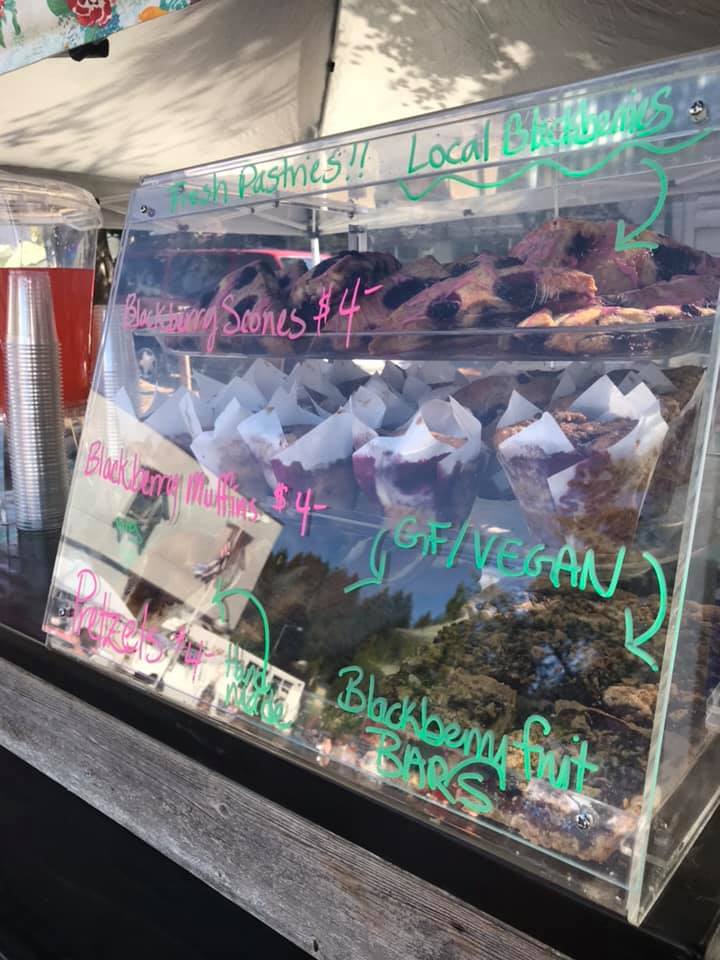 Fresh Pastries!! Local Blackberries
Blackberry Scones $4-
Blackberry Muffins $4-
GF/VEGAN
Pretzels $4
Hand
made
Blackberry fruit
BARS